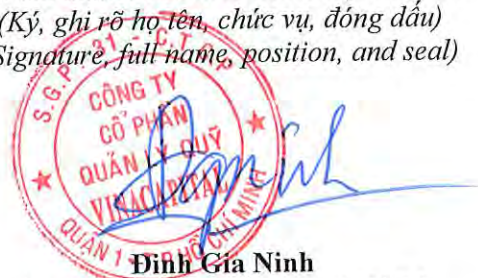 (Ký, ghi rõ họ tên, chức vụ, đóng dấu)
Signature, full name, position, and seal)
S.G.P: 31 - C.T.C.P
CÔNG TY
CỔ PHẦN
QUẢN LÝ QUỸ
VINACAPITAL
QUẬN 1 - TP HỒ CHÍ MINH
Đinh Gia Ninh